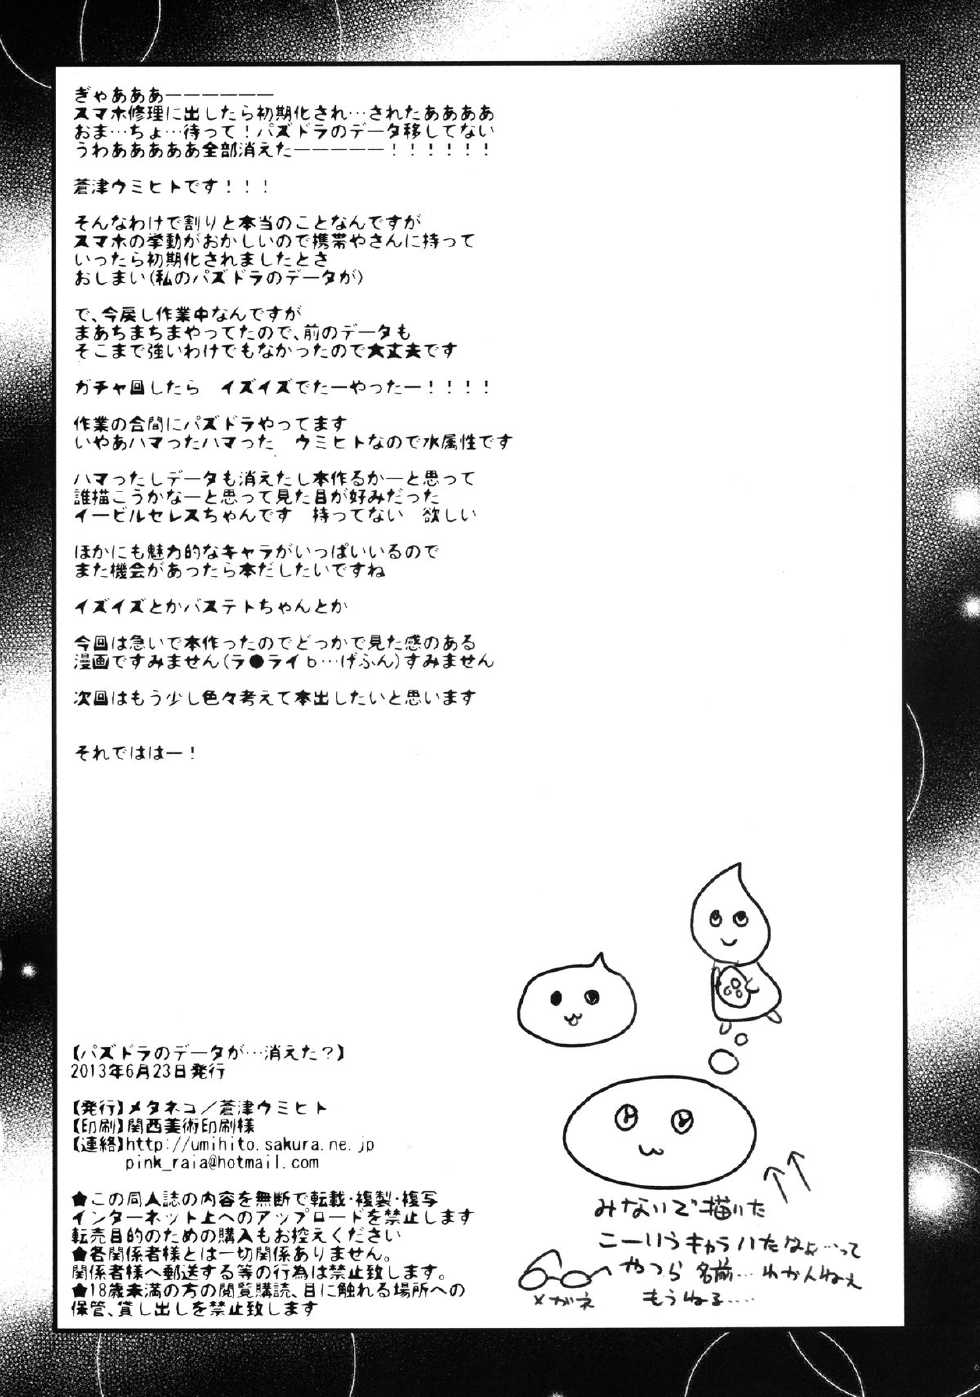 ぎゃあああーーーーーー
スマホ修理に出したら初期化され…されたああああ
おま…ちょ…待って！パズドラのデータ移してない
うわああああああ全部消えたーーーーー！！！！！！
蒼津ウミヒトです！！！
そんなわけで割りと本当のことなんですが
スマホの挙動がおかしいので携帯やさんに持って
いったら初期化されましたとさ
おしまい(私のパズドラのデータが)
で、今戻し作業中なんですが
まあちまちまやってたので、前のデータも
そこまで強いわけでもなかったので大丈夫です
ガチャ回したら　イズイズでたーやったー！！！！
作業の合間にパズドラやってます
いやあハマったハマった　ウミヒトなので水属性です
ハマったしデータも消えたし本作るかーと思って
誰描こうかなーと思って見た目が好みだった
イービルセレスちゃんです　持ってない　欲しい
ほかにも魅力的なキャラがいっぱいいるので
また機会があったら本だしたいですね
イズイズとかバステトちゃんとか
今回は急いで本作ったのでどっかで見た感のある
漫画ですみません(ラ●ライb…げふん)すみません
次回はもう少し色々考えて本出したいと思います
それではほー！
【パズドラのデータが…消えた？】
2013年6月23日発行
【発行】メタネコ／蒼津ウミヒト
【印刷】関西美術印刷様
【連絡】http://umihito.sakura.ne.jp
pink_raia@hotmail.com
★この同人誌の内容を無断で転載・複製・複写
インターネット上へのアップロードを禁止します
転売目的のための購入もお控えください
★各関係者様とは一切関係ありません。
関係者様へ郵送する等の行為は禁止致します。
★18歳未満の方の閲覧購読、目に触れる場所への
保管、貸し出しを禁止致します
みないで描いた
こーいうキャラいたなよ…って
やつら 名前… わかんねぇ
もうねる….
メガネ